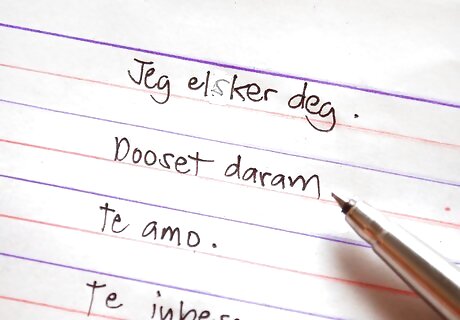 Jeg elsker deg.
Dooset daram
te amo.
Te